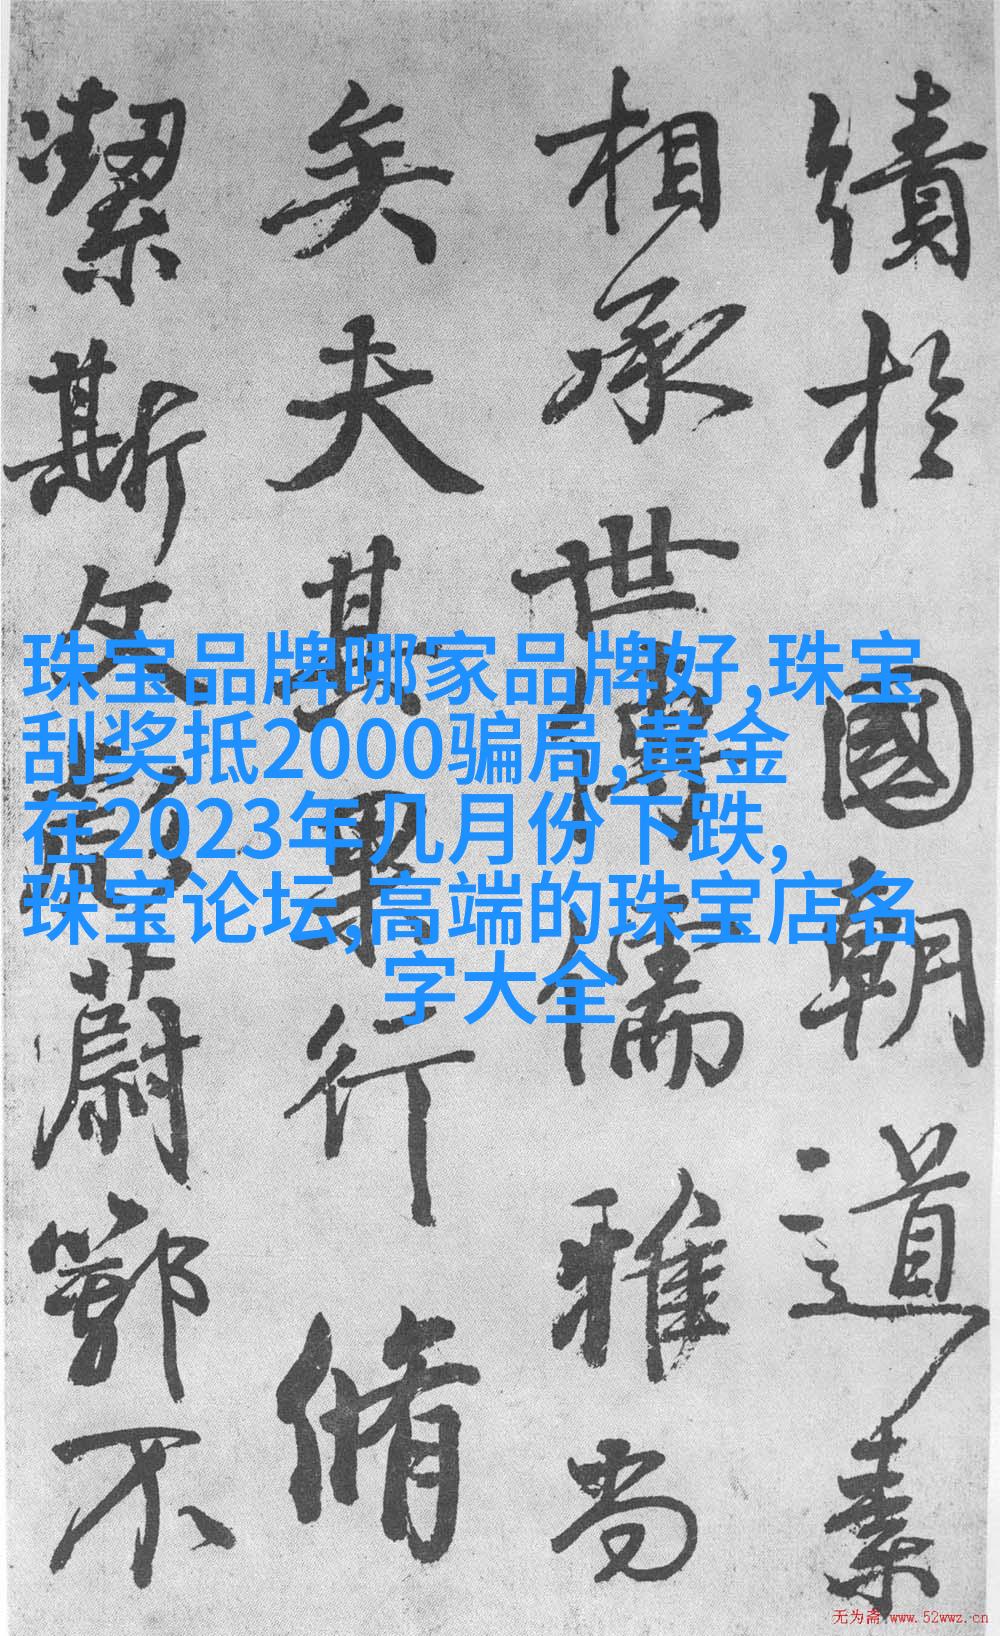 珠宝品牌哪家品牌好,珠宝
刮奖抵2000骗局,黄金
在2023年几月份下跌,
珠宝论坛,高端的珠宝店名
字大全
績於國朝道素
相承世傳儒雅尚
矣夫其果行脩
潔斯文彪蔚鄂不
无为斋 www.52wwz.cn